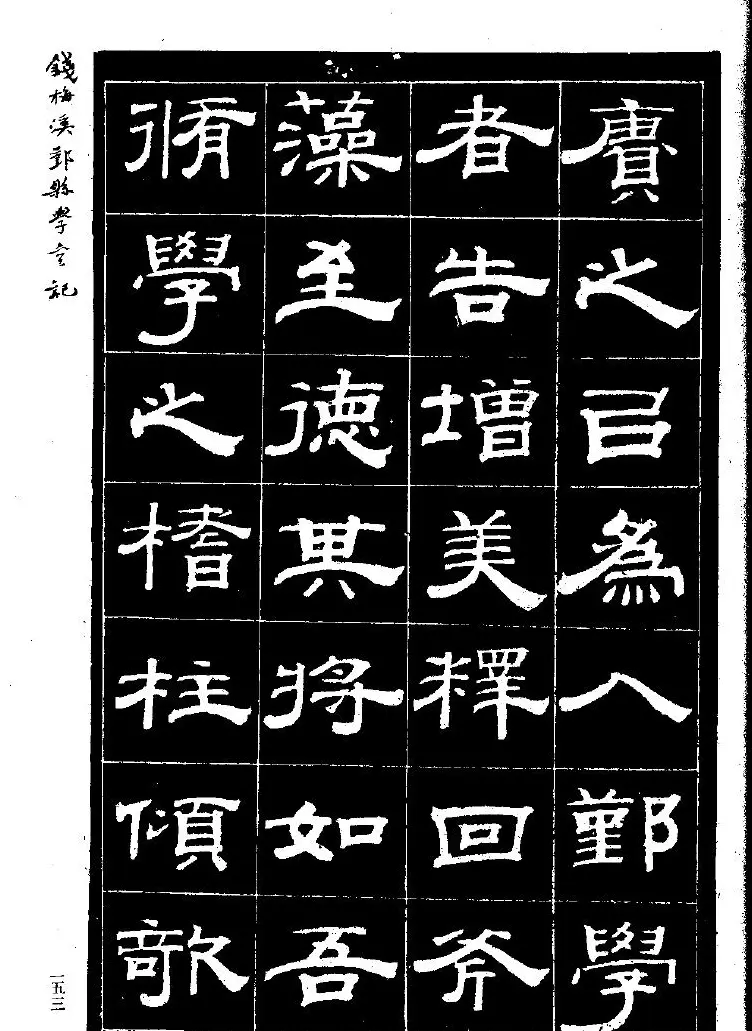 賡之㠯為入鄞學
者告增美釋回斧
藻至德其將如吾
脩學之榰柱傾欹
錢梅溪鄞縣學宮記
一五三